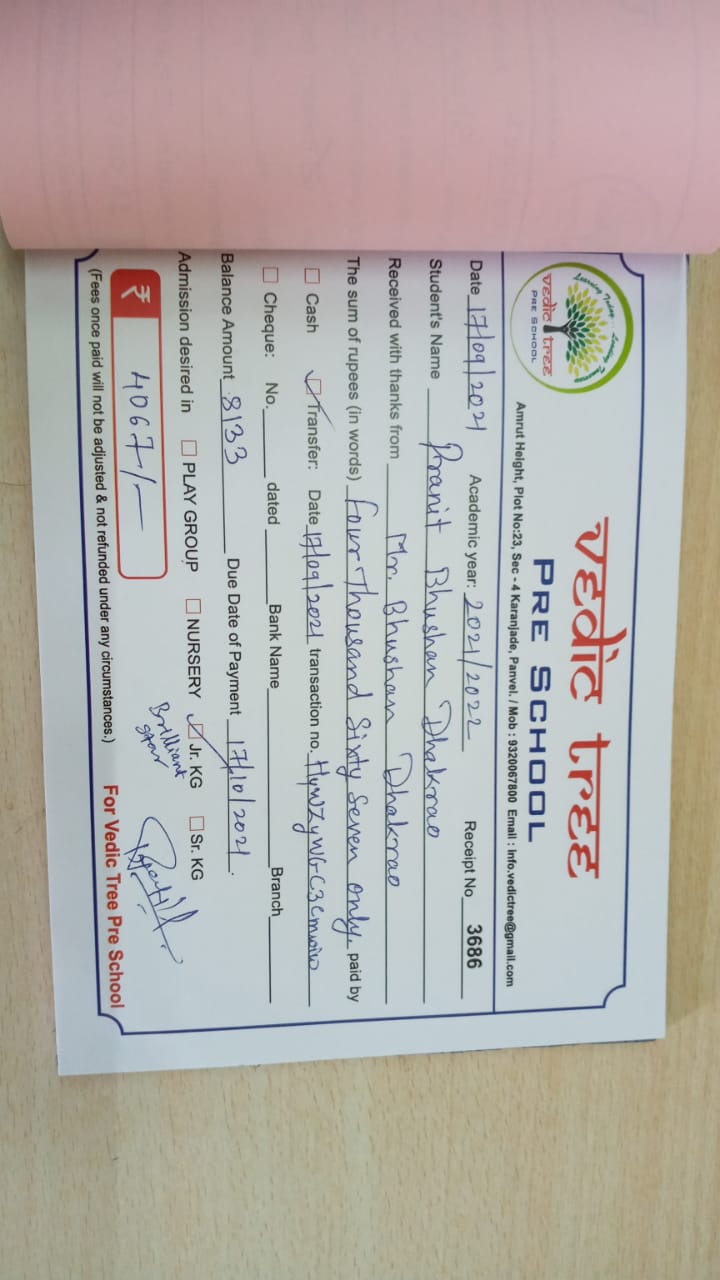 Learning Today... Leading Tomorrow
vedic tree
PRE SCHOOL
vedic tree
PRE SCHOOL
Amrut Height, Plot No:23, Sec - 4 Karanjade, Panvel. / Mob : 9320067800 Email : Info.vedictree@gmail.com
Date 17/09/2021 Academic year: 2021/2022 Receipt No 3686
Student's Name Pranit Bhushan Dhakrao
Received with thanks from Mr. Bhushan Dhakrao
The sum of rupees (in words) four Thousand Sixty Seven only. paid by
Cash Transfer: Date 17/09/2021 transaction no.
Cheque: No. dated Bank Name Branch
Balance Amount 8133 Due Date of Payment 17/10/2021.
Admission desired in PLAY GROUP NURSERY Jr. KG Sr. KG
Brilliant
star
₹ 4067/-
(Fees once paid will not be adjusted & not refunded under any circumstances.) For Vedic Tree Pre School